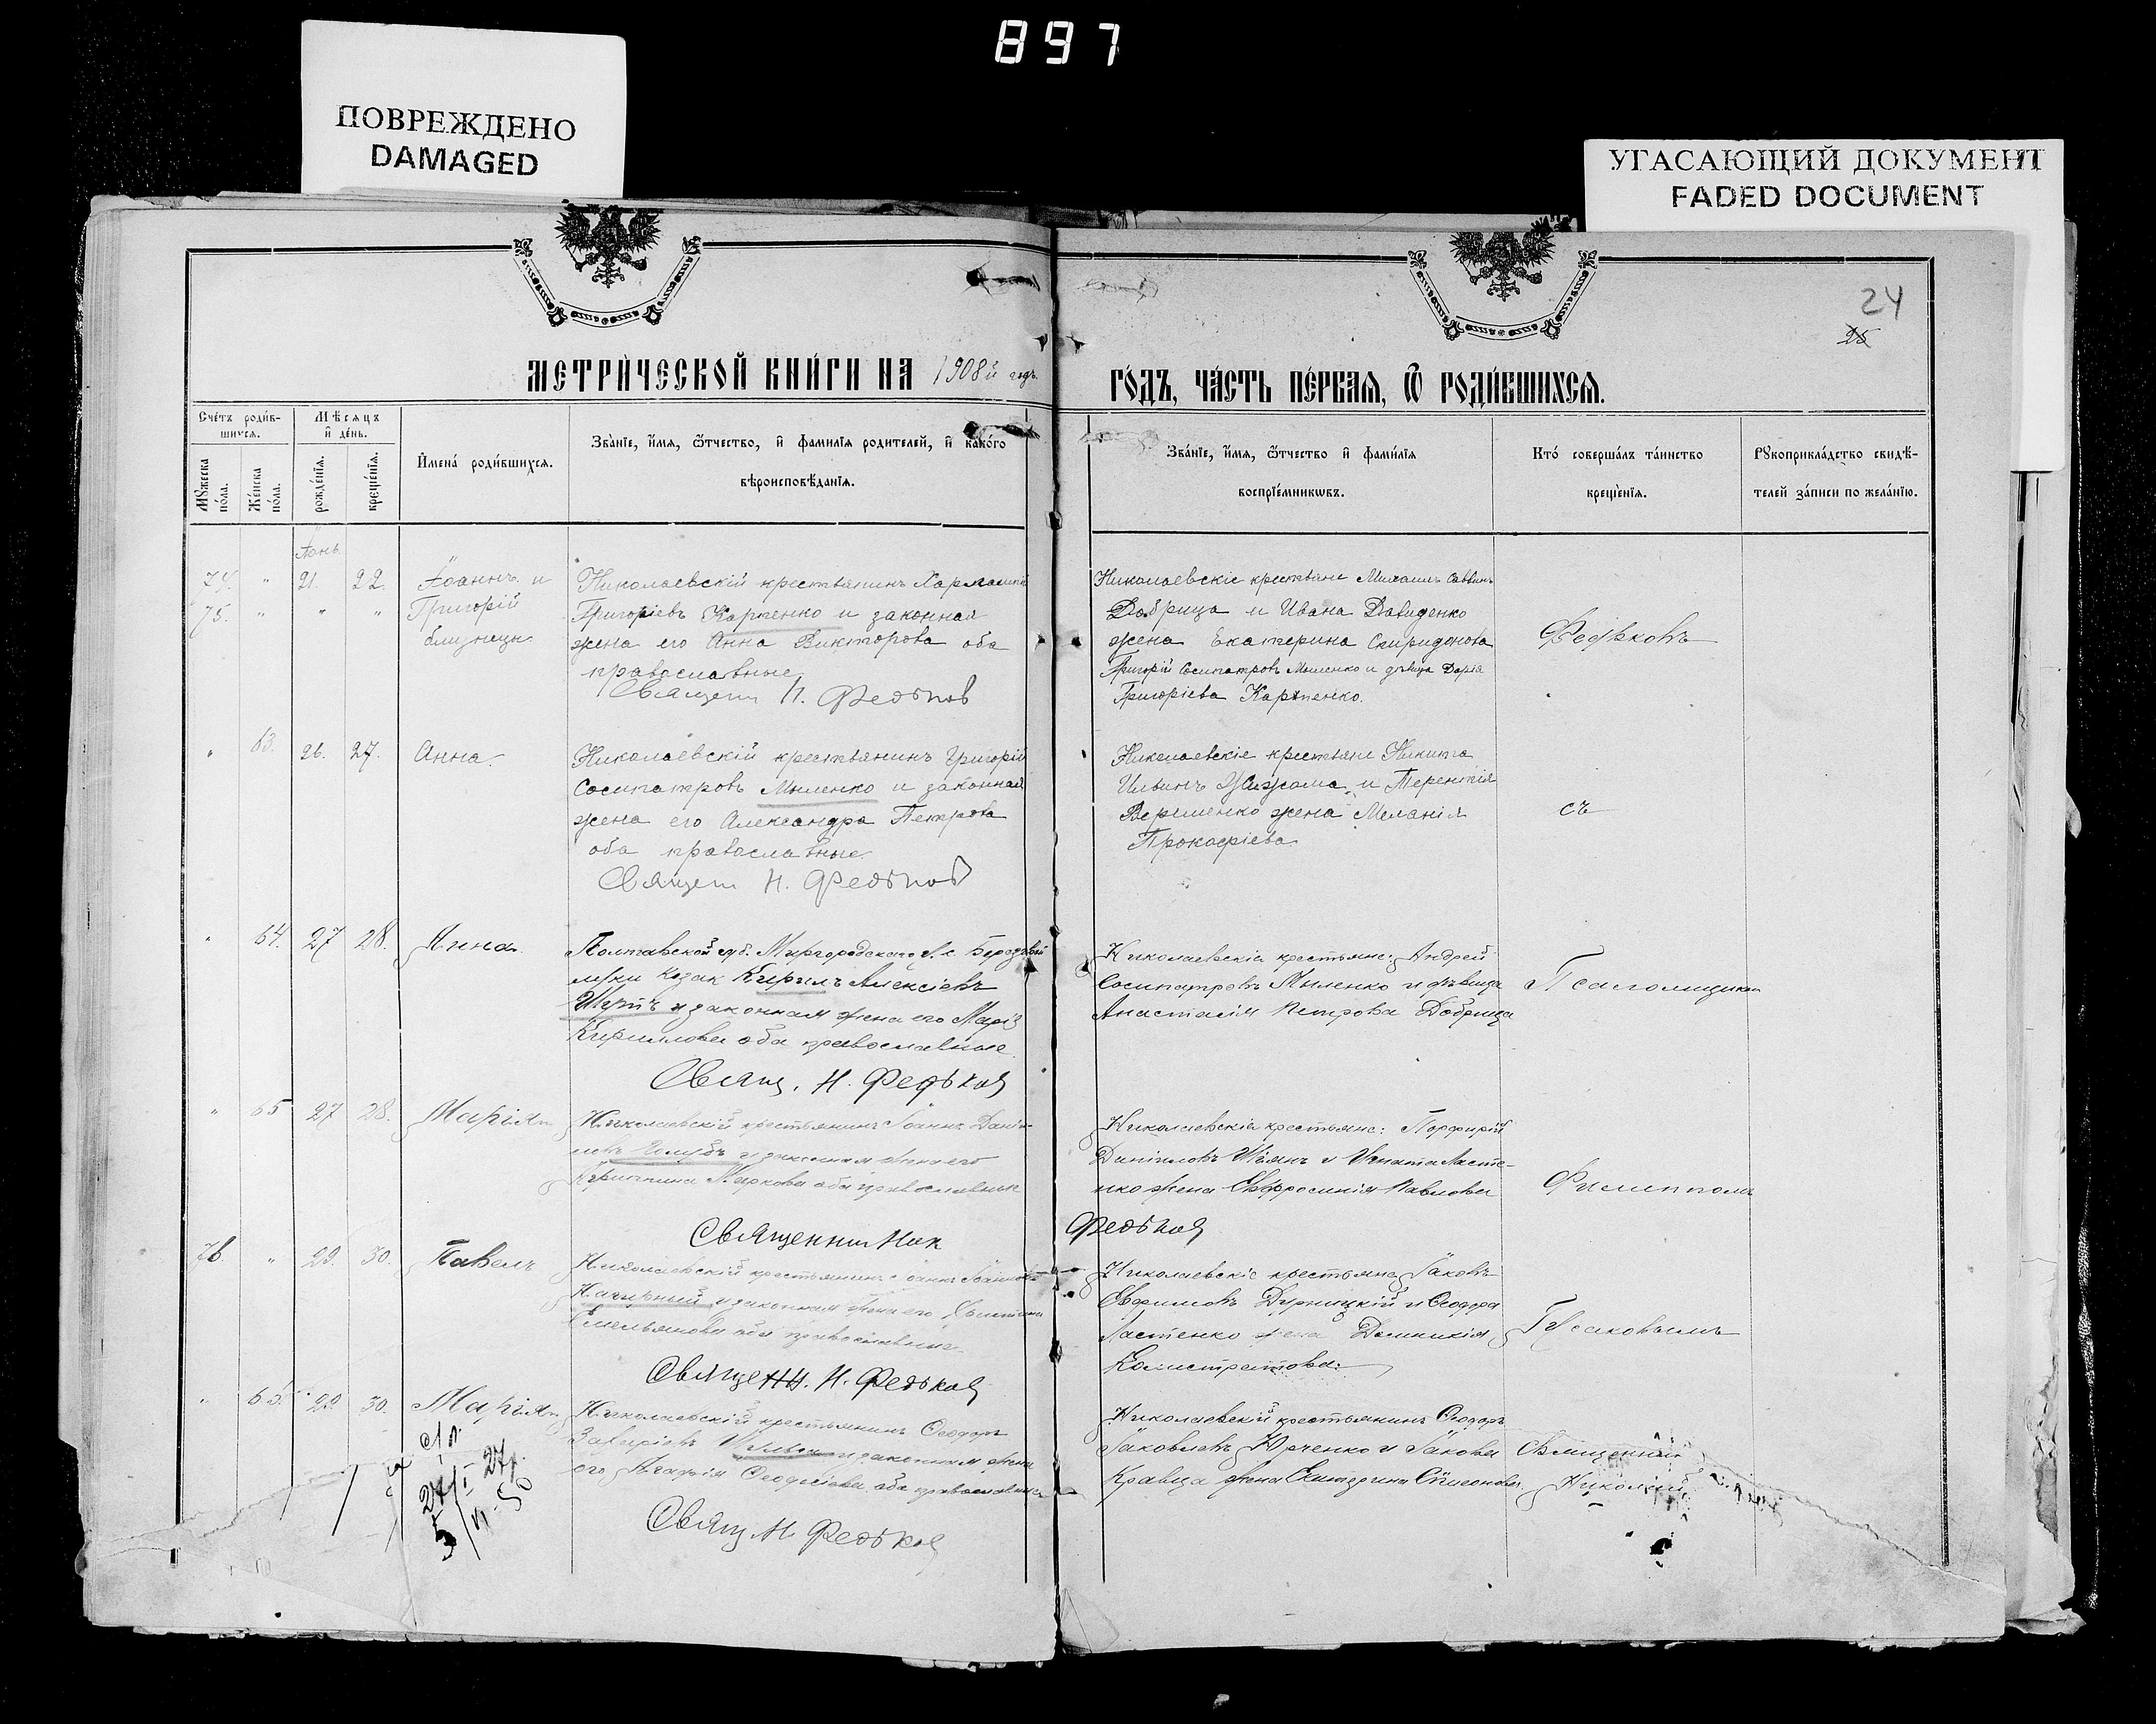 897
ПОВРЕЖДЕНО
DAMAGED
УГАСАЮЩИЙ ДОКУМЕНТ
FADED DOCUMENT
24
25
МЕТРИ́ЧЕСКОЙ КНИ́ГИ НА 1908й годъ
ГО́ДЪ, ЧА́СТЬ ПЕ́РВАЯ, Ѿ РОДИ́ВШИХСЯ.
Сче́тъ роди́в-
шихся.
Мѣсяцъ
и҆ де́нь.
Му́жеска
по́ла.
Же́нска
по́ла.
рожде́нїя.
креще́нїя.
И҆мена̀ роди́вшихся.
Зва́нїе, и҆́мя, ѻ҆́тчество, и҆ фамилїя родителей, и҆ како́го
вѣроисповѣ́данїя.
Зва́нїе, и҆́мя, ѻ҆́тчество и҆ фами́лїя
воспрїе́мникѡвъ.
Кто́ соверша́лъ та́инство
креще́нїя.
Рꙋкоприкла́дство свидѣ́-
телей за́писи по жела́нїю.
Іюнь
74. " 21. 22. Іоаннъ и
75. " " " Григорій
близнецы
Николаевскій крестьянинъ Харлампій
Григоріевъ Карпенко и законная
жена его Анна Викторова оба
православные
Священ Н. Федьков
Николаевскіе крестьяне Михаилъ Саввинъ
Добрица и Ивана Давиденко
жена Екатерина Спиридонова
Григорій Сосипатровъ Мыленко и дѣвица Дарія
Григоріева Карпенко.
Федьковъ
" 63. 26. 27. Анна.
Николаевскій крестьянинъ Григорій
Сосипатровъ Мыленко и законная
жена его Александра Петрова
оба православные
Священ Н. Федьков
Николаевскіе крестьяне Никита
Ильинъ и Терентія
жена Меланія
Прокофіева
съ
" 64. 27 28. Анна.
Полтавской губ. Миргородскаго
козак Кирилъ Алексіевъ
и законная жена его Марія
Кириллова оба православные
Свящ. Н. Федьков
Николаевскіе крестьяне: Андрей
Сосипатровъ Мыленко и дѣвица
Анастасія Петрова Добрица
Псаломщиком
" 65 27 28. Марія
Николаевскій крестьянинъ Іоаннъ Дані-
ловъ Голубъ и законная жена его
Маркова оба православные
Священник Ник
Федьков
Николаевскіе крестьяне: Порфирій
Даніиловъ и Игната Ласте-
нко жена Евфросинія Павлова
Филиппомъ
76 " 29. 30. Павелъ
Николаевскій крестьянинъ Іоаннъ Іоанновъ
и законная жена его
Емельянова оба православные.
Священн. Н. Федьков
Николаевскіе крестьяне Іаковъ
Евфимовъ и Ѳеодора
Ластенко жена Домникія
Калистратова
" 65. 29. 30. Марія
Николаевскій крестьянинъ Ѳеодоръ
и законная жена
его Агафія оба православные
Свящ. Н. Федьков
Николаевскій крестьянинъ Ѳеодоръ
Іаковлевъ Юрченко и Іакова
Кравца жена Екатерина
Священник
Николай